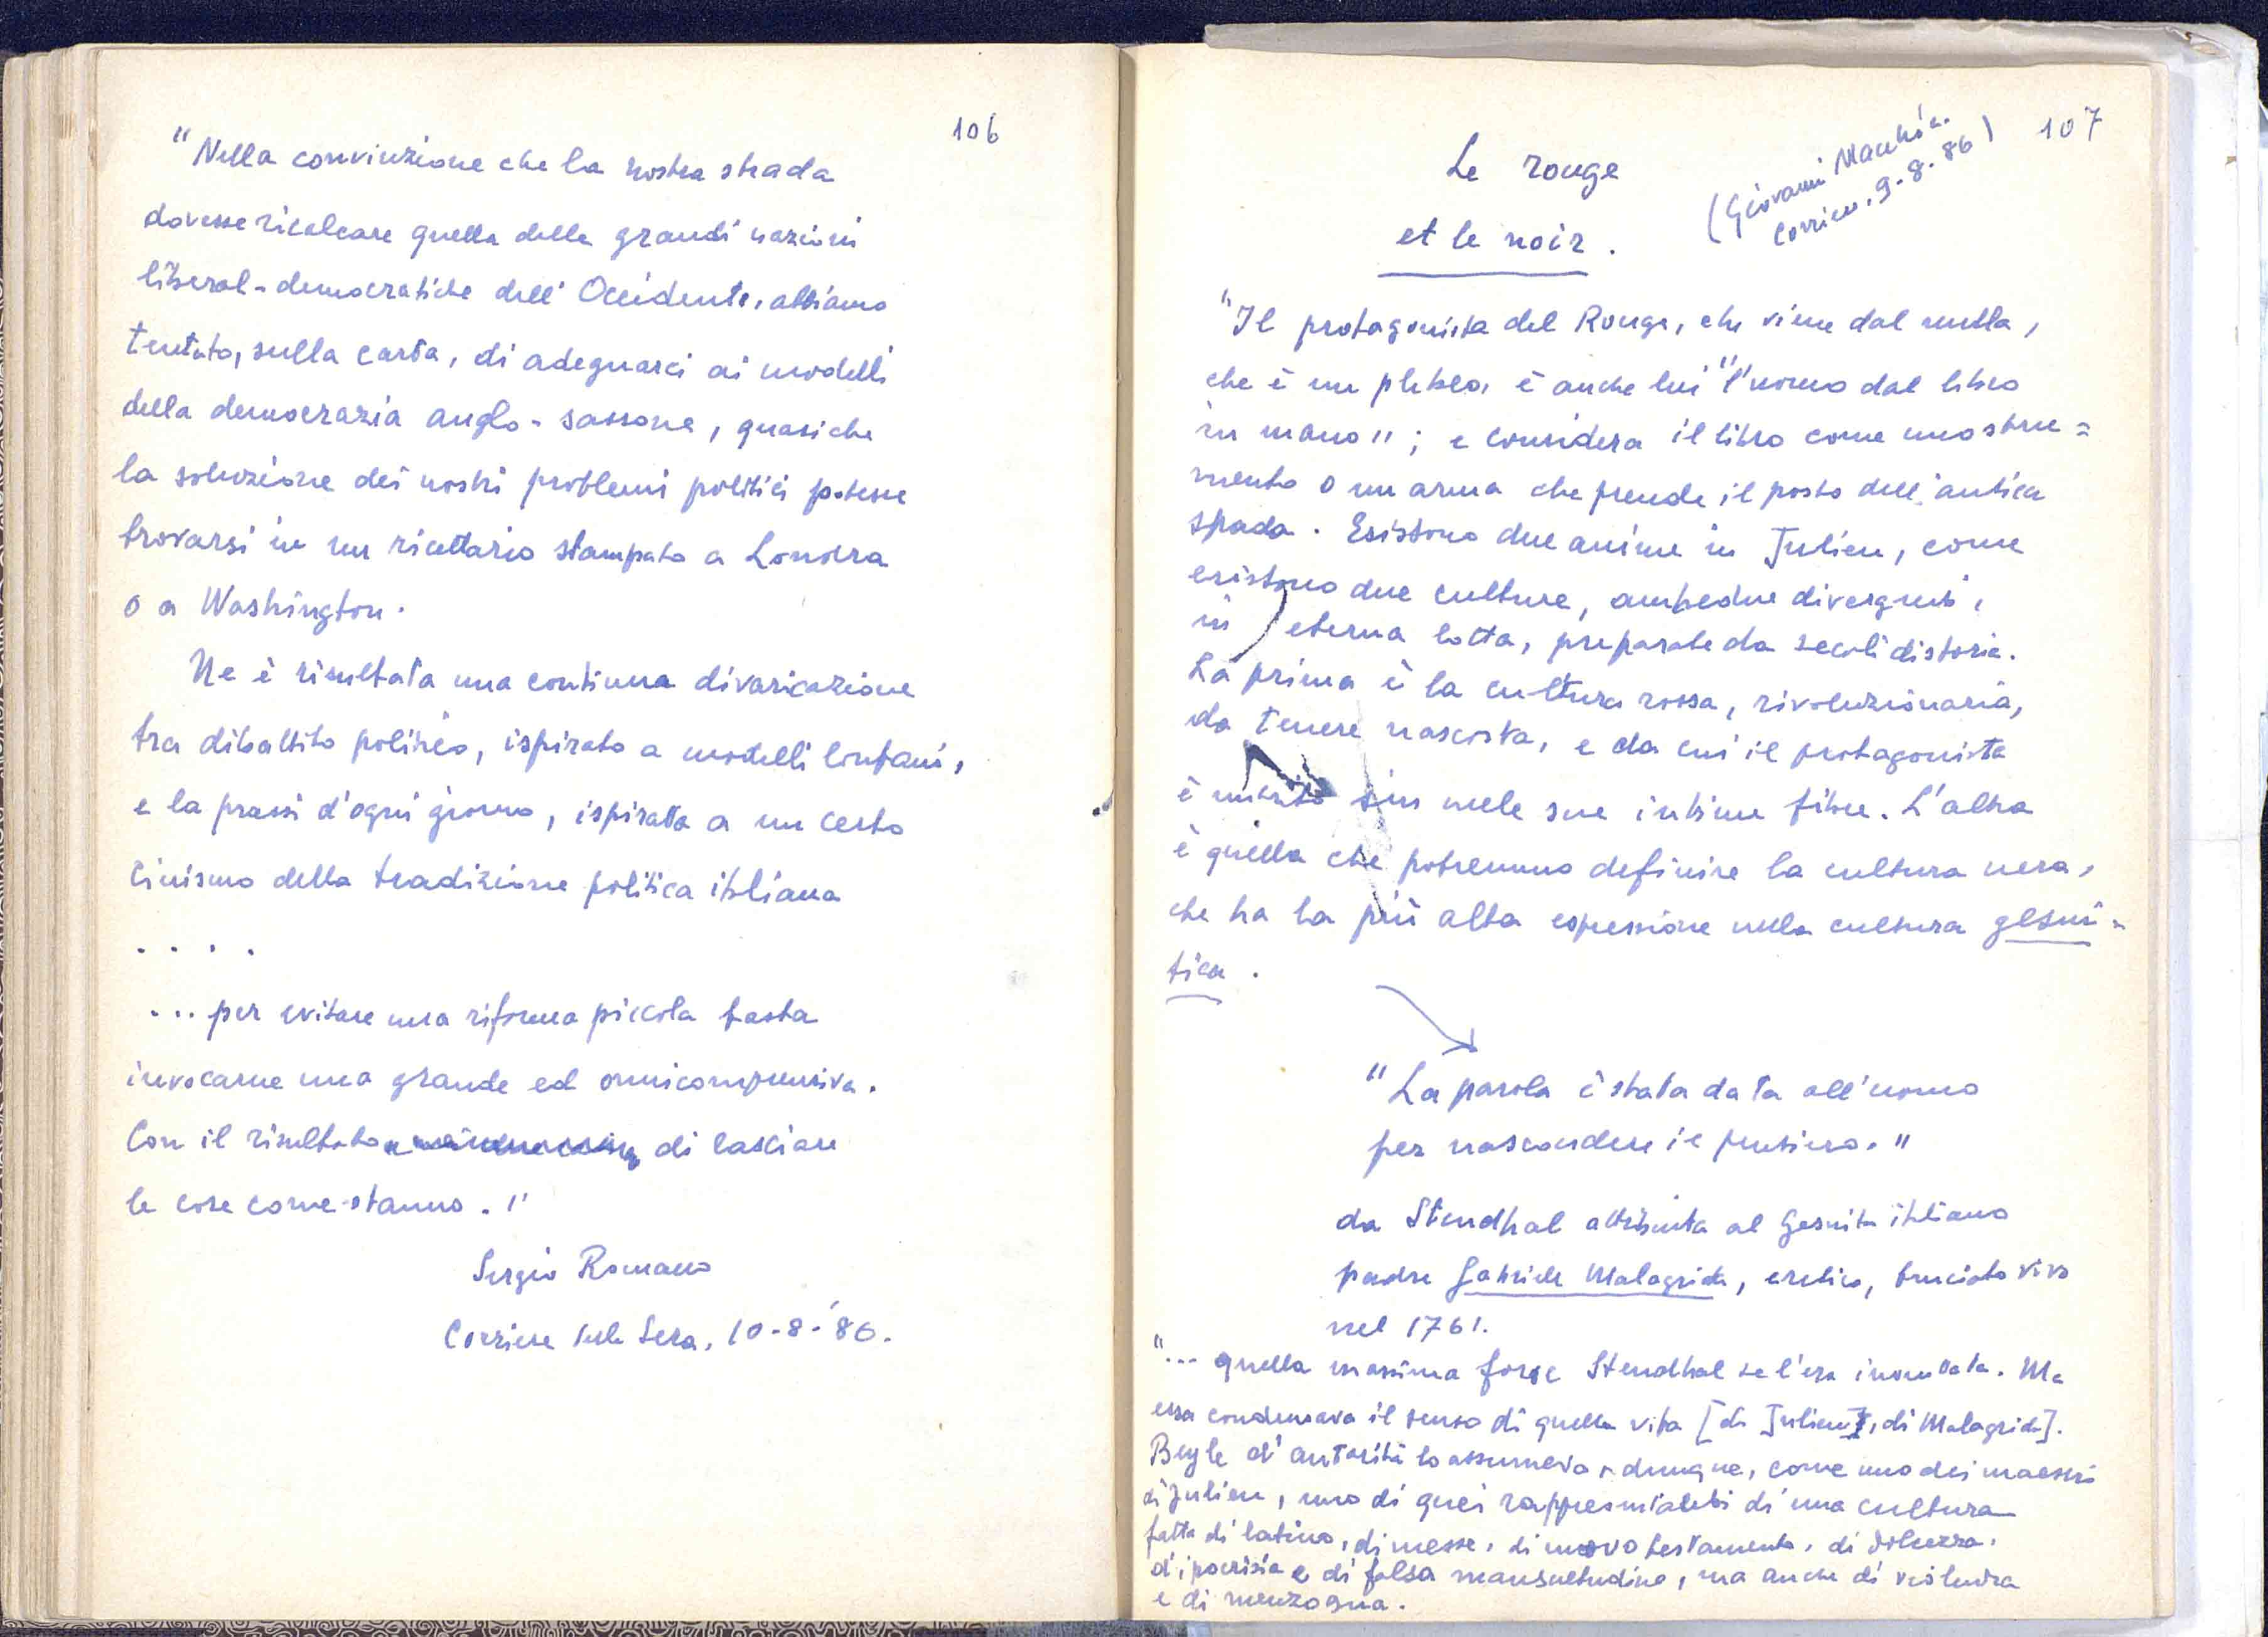 106
"Nella convinzione che la nostra strada
dovesse ricalcare quella delle grandi nazioni
liberal-democratiche dell'Occidente, abbiamo
tentato, sulla carta, di adeguarci ai modelli
della democrazia anglo-sassone, quasi che
la soluzione dei nostri problemi politici potesse
trovarsi in un ricettario stampato a Londra
o a Washington.
Ne è risultata una continua divaricazione
tra dibattito politico, ispirato a modelli lontani,
e la prassi d'ogni giorno, ispirata a un certo
cinismo della tradizione politica italiana
. . . .
... per evitare una riforma piccola basta
invocarne una grande ed omnicomprensiva.
Con il risultato di lasciare
le cose come stanno."
Sergio Romano
Corriere della Sera, 10-8-'86.
107
Le rouge
et le noir.
(Giovanni Macchia.
Corriere. 9.8.86)
"Il protagonista del Rouge, che viene dal nulla,
che è un plebeo, è anche lui "l'uomo dal libro
in mano"; e considera il libro come uno stru=
mento o un arma che prende il posto dell'antica
spada. Esistono due anime in Julien, come
esistono due culture, ambedue divergenti,
in eterna lotta, preparate da secoli di storia.
La prima è la cultura rossa, rivoluzionaria,
da tenere nascosta, e da cui il protagonista
è sin nele sue intime fibre. L'altra
è quella che potremmo definire la cultura nera,
che ha la più alta espressione nella cultura gesui=
tica.
"La parola è stata data all'uomo
per nascondere il pensiero."
da Stendhal attribuita al Gesuita italiano
padre Gabriele Malagrida, eretico, bruciato vivo
nel 1761.
"... quella massima forse Stendhal se l'era inventata. Ma
essa condensava il senso di quella vita [di Julien, di Malagrida].
Beyle d'autorità lo assumeva, dunque, come uno dei maestri
di Julien, uno di quei rappresentanti di una cultura
fatta di latino, di messe, di nuovo testamento, di dolcezza,
d'ipocrisia e di falsa mansuetudine, ma anche di violenza
e di menzogna.